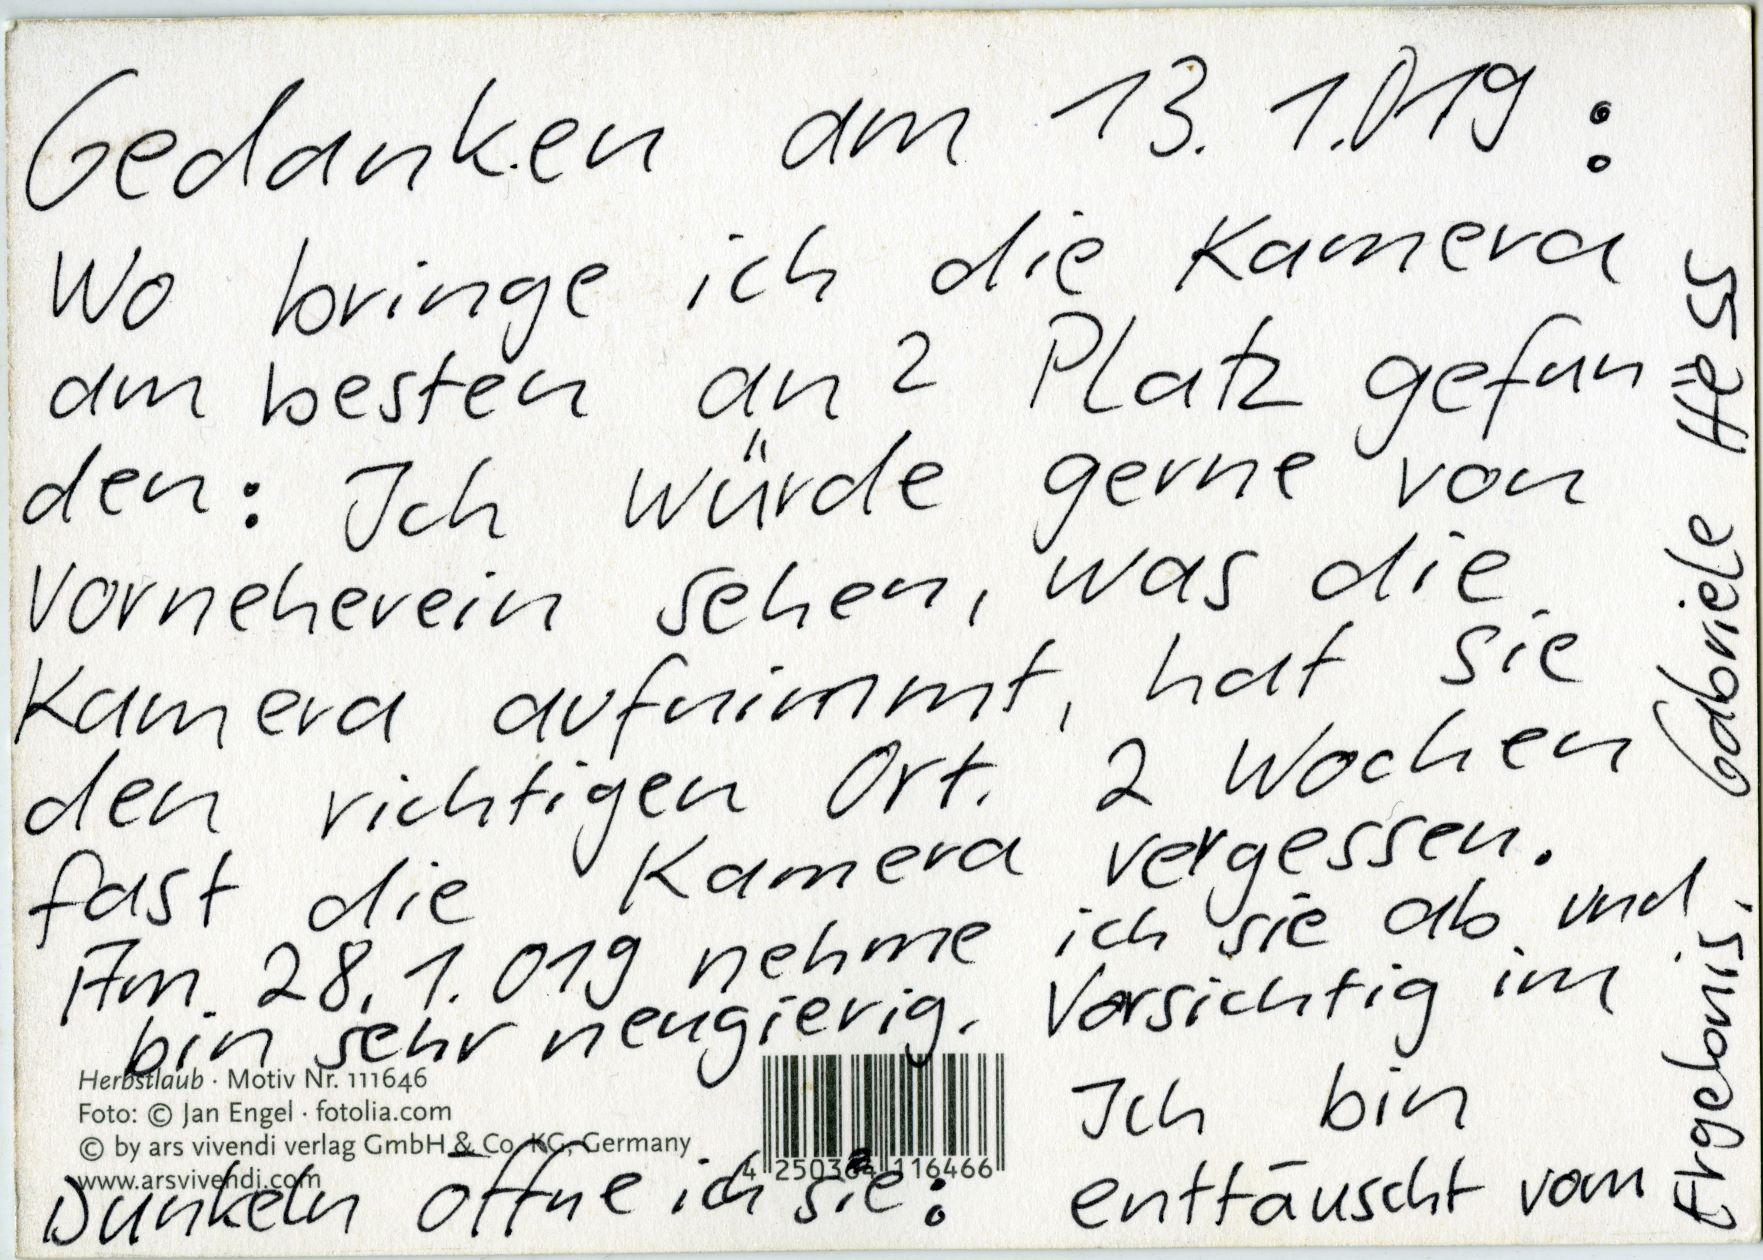 Gedanken am 13.1.019:
Wo bringe ich die Kamera
am besten an? Platz gefun
den: Ich würde gerne von
Vorneherein sehen, was die
Kamera aufnimmt, hat sie
den richtigen Ort. 2 Wochen
fast die Kamera vergessen.
Am 28.1.019 nehme ich sie ab und
bin sehr neugierig. Vorsichtig im
Dunkeln öffne ich sie:
Ich bin
enttäuscht vom
Ergebnis.
Gabriele Hëss
Herbstlaub · Motiv Nr. 111646
Foto: © Jan Engel · fotolia.com
© by ars vivendi verlag GmbH & Co. KG, Germany
www.arsvivendi.com
4 250364 116466